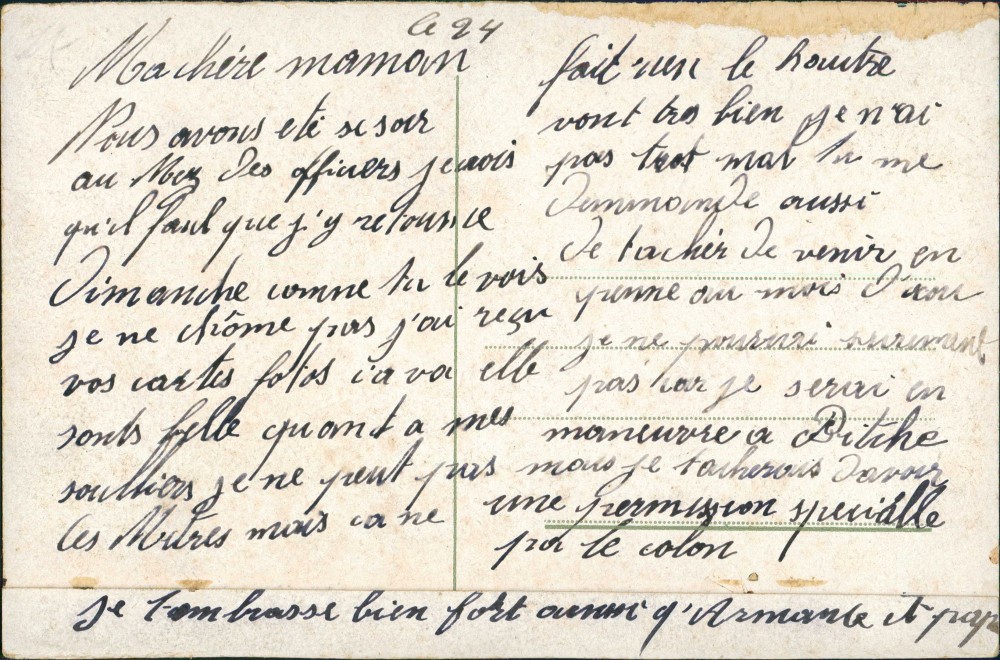 le 24
Ma chère maman
Nous avons eté se soir
au Mez des officiers je crois
qu'il faut que j'y retourne
Dimanche comme tu le vois
je ne chôme pas j'ai reçu
vos cartes fotos ca va elle
sonts belle quant a mes
soulliers je ne peut pas
les Mètres mais ca ne
fait rien le hautre
vont tres bien je n'ai
pas trot mal tu me
demmande aussi
de tacher de venir en
perme au mois d'aou
je ne pourrai surement
pas car je serai en
maneuvre a Bitche
mais je tacherais davoir
une permission speciâlle
par le colon
je t'embrasse bien fort aussi q'Armante et papa